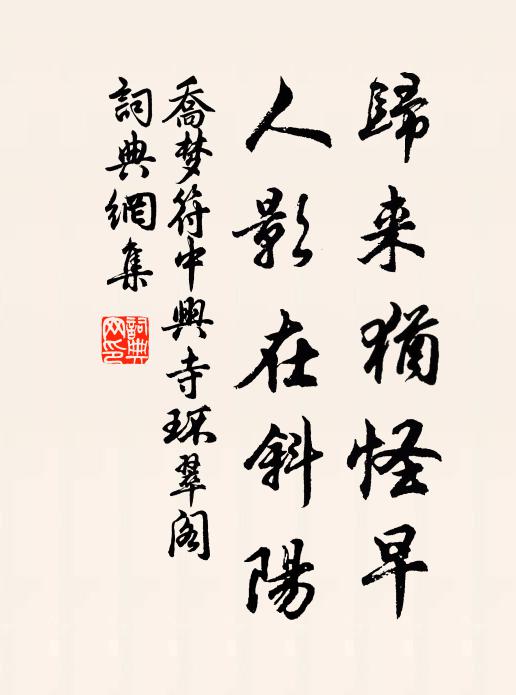 歸来猶怪早
人影在斜陽
喬梦符中興寺环翠阁
詞典網集
詞典网印